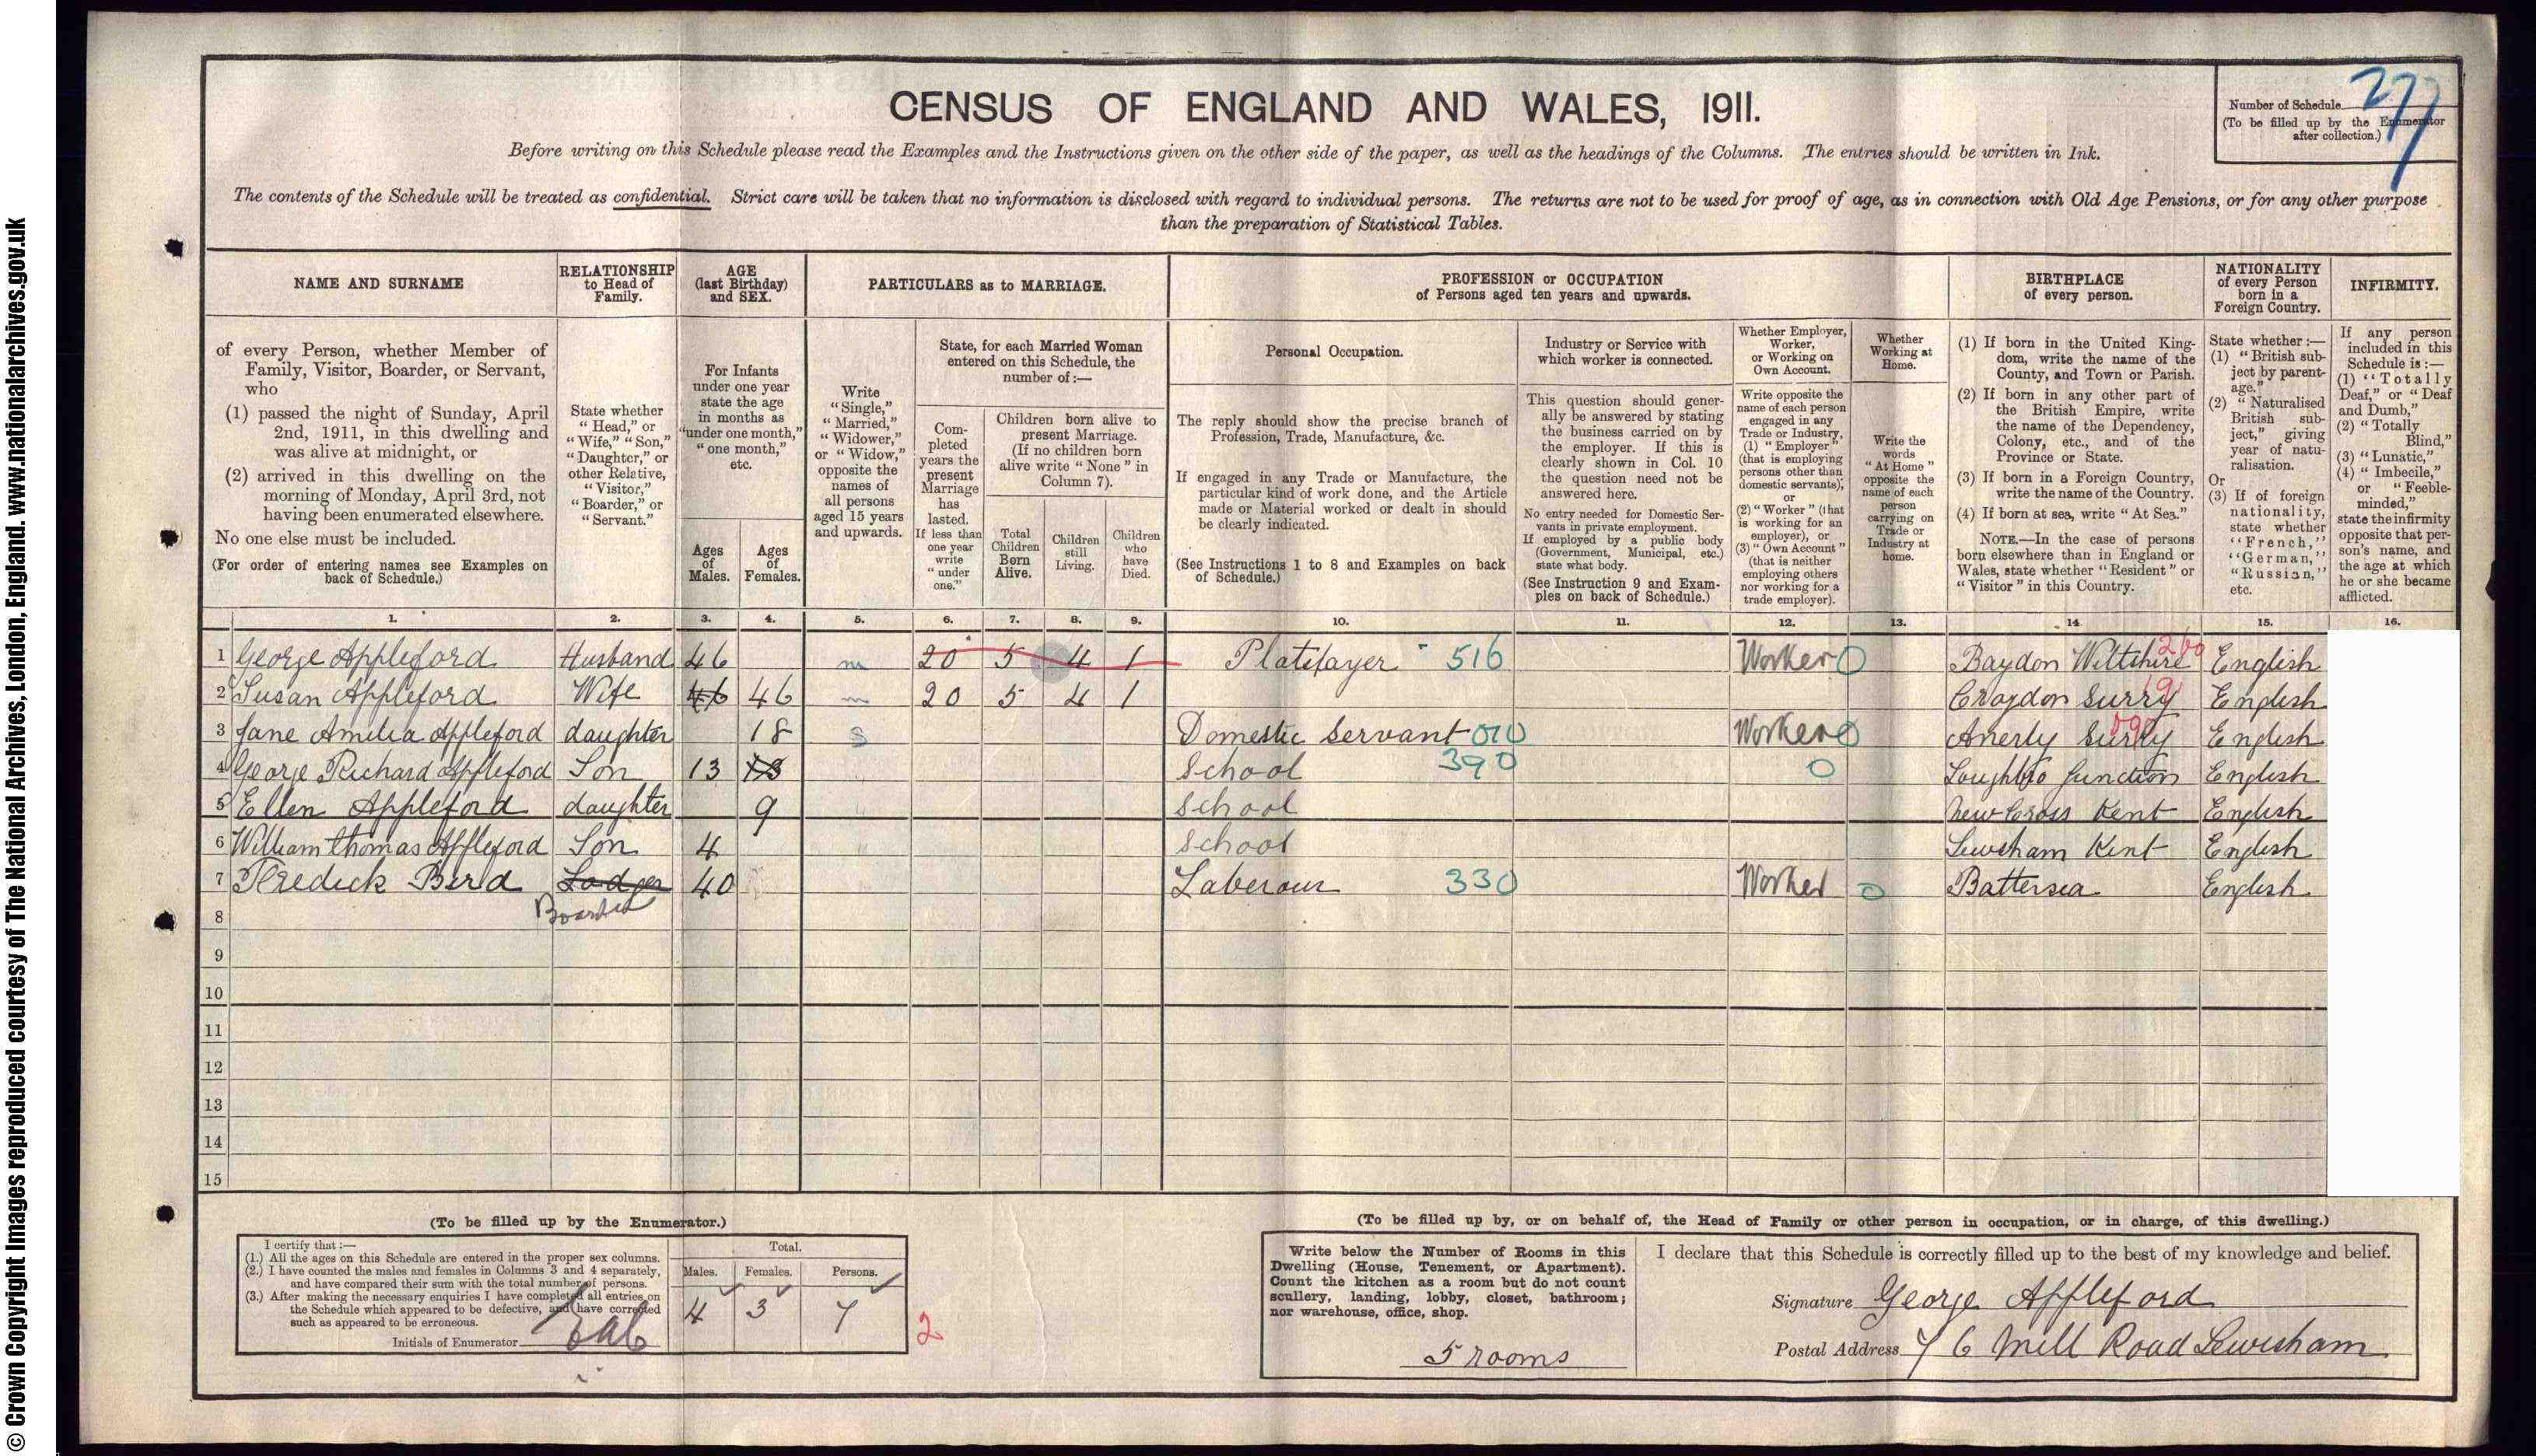 © Crown Copyright Images reproduced courtesy of The National Archives, London, England. www.nationalarchives.gov.uk
CENSUS OF ENGLAND AND WALES, 1911.
Number of Schedule 277
(To be filled up by the Enumerator
after collection.)
Before writing on this Schedule please read the Examples and the Instructions given on the other side of the paper, as well as the headings of the Columns. The entries should be written in Ink.
The contents of the Schedule will be treated as confidential. Strict care will be taken that no information is disclosed with regard to individual persons. The returns are not to be used for proof of age, as in connection with Old Age Pensions, or for any other purpose
than the preparation of Statistical Tables.
NAME AND SURNAME
of every Person, whether Member of
Family, Visitor, Boarder, or Servant,
who
(1) passed the night of Sunday, April
2nd, 1911, in this dwelling and
was alive at midnight, or
(2) arrived in this dwelling on the
morning of Monday, April 3rd, not
having been enumerated elsewhere.
No one else must be included.
(For order of entering names see Examples on
back of Schedule.)
RELATIONSHIP
to Head of
Family.
State whether
"Head," or
"Wife," "Son,"
"Daughter," or
other Relative,
"Visitor,"
"Boarder," or
"Servant."
AGE
(last Birthday)
and SEX.
For Infants
under one year
state the age
in months as
"under one month,"
"one month,"
etc.
Ages
of
Males.
Ages
of
Females.
PARTICULARS as to MARRIAGE.
Write
"Single,"
"Married,"
"Widower,"
or "Widow,"
opposite the
names of
all persons
aged 15 years
and upwards.
State, for each Married Woman
entered on this Schedule, the
number of:—
Com-
pleted
years the
present
Marriage
has
lasted.
If less than
one year
write
"under
one."
Children born alive to
present Marriage.
(If no children born
alive write "None" in
Column 7).
Total
Children
Born
Alive.
Children
still
Living.
Children
who
have
Died.
PROFESSION or OCCUPATION
of Persons aged ten years and upwards.
Personal Occupation.
The reply should show the precise branch of
Profession, Trade, Manufacture, &c.
If engaged in any Trade or Manufacture, the
particular kind of work done, and the Article
made or Material worked or dealt in should
be clearly indicated.
(See Instructions 1 to 8 and Examples on back
of Schedule.)
Industry or Service with
which worker is connected.
This question should gener-
ally be answered by stating
the business carried on by
the employer. If this is
clearly shown in Col. 10
the question need not be
answered here.
No entry needed for Domestic Ser-
vants in private employment.
If employed by a public body
(Government, Municipal, etc.)
state what body.
(See Instruction 9 and Exam-
ples on back of Schedule.)
Whether Employer,
Worker,
or Working on
Own Account.
Write opposite the
name of each person
engaged in any
Trade or Industry,
(1) "Employer"
(that is employing
persons other than
domestic servants),
or
(2) "Worker" (that
is working for an
employer), or
(3) "Own Account"
(that is neither
employing others
nor working for a
trade employer).
Whether
Working at
Home.
Write the
words
"At Home"
opposite the
name of each
person
carrying on
Trade or
Industry at
home.
BIRTHPLACE
of every person.
(1) If born in the United King-
dom, write the name of the
County, and Town or Parish.
(2) If born in any other part of
the British Empire, write
the name of the Dependency,
Colony, etc., and of the
Province or State.
(3) If born in a Foreign Country,
write the name of the Country.
(4) If born at sea, write "At Sea."
NOTE.—In the case of persons
born elsewhere than in England or
Wales, state whether "Resident" or
"Visitor" in this Country.
NATIONALITY
of every Person
born in a
Foreign Country.
State whether :—
(1) "British sub-
ject by parent-
age,"
(2) "Naturalised
British sub-
ject," giving
year of natu-
ralisation.
Or
(3) If of foreign
nationality,
state whether
"French,"
"German,"
"Russian,"
etc.
INFIRMITY.
If any person
included in this
Schedule is :—
(1) "Totally
Deaf," or "Deaf
and Dumb,"
(2) "Totally
Blind,"
(3) "Lunatic,"
(4) "Imbecile,"
or "Feeble-
minded,"
state the infirmity
opposite that per-
son's name, and
the age at which
he or she became
afflicted.
1. 2. 3. 4. 5. 6. 7. 8. 9. 10. 11. 12. 13. 14. 15. 16.
1 George Appleford Husband 46 m 20 5 4 1 Platelayer 516 Worker 0 Baydon Wiltshire 260 English
2 Susan Appleford Wife 46 46 m 20 5 4 1 Croydon Surry English
3 Jane Amelia Appleford daughter 18 S Domestic Servant 010 Worker 0 Anerly Surry English
4 George Richard Appleford Son 13 13 School 390 0 Loughbro Junction English
5 Ellen Appleford daughter 9 School New Cross Kent English
6 William thomas Appleford Son 4 School Lewsham Kent English
7 Fredick Bird Lodger 40 Laberour 330 Worker 0 Battersea English
Boarder
8
9
10
11
12
13
14
15
(To be filled up by the Enumerator.)
I certify that :—
(1.) All the ages on this Schedule are entered in the proper sex columns.
(2.) I have counted the males and females in Columns 3 and 4 separately,
and have compared their sum with the total number of persons.
(3.) After making the necessary enquiries I have completed all entries on
the Schedule which appeared to be defective, and have corrected
such as appeared to be erroneous.
Initials of Enumerator
Total.
Males. Females. Persons.
4 3 7
2
(To be filled up by, or on behalf of, the Head of Family or other person in occupation, or in charge, of this dwelling.)
Write below the Number of Rooms in this
Dwelling (House, Tenement, or Apartment).
Count the kitchen as a room but do not count
scullery, landing, lobby, closet, bathroom;
nor warehouse, office, shop.
5 rooms
I declare that this Schedule is correctly filled up to the best of my knowledge and belief.
Signature George Appleford
Postal Address 76 Mill Road Lewisham